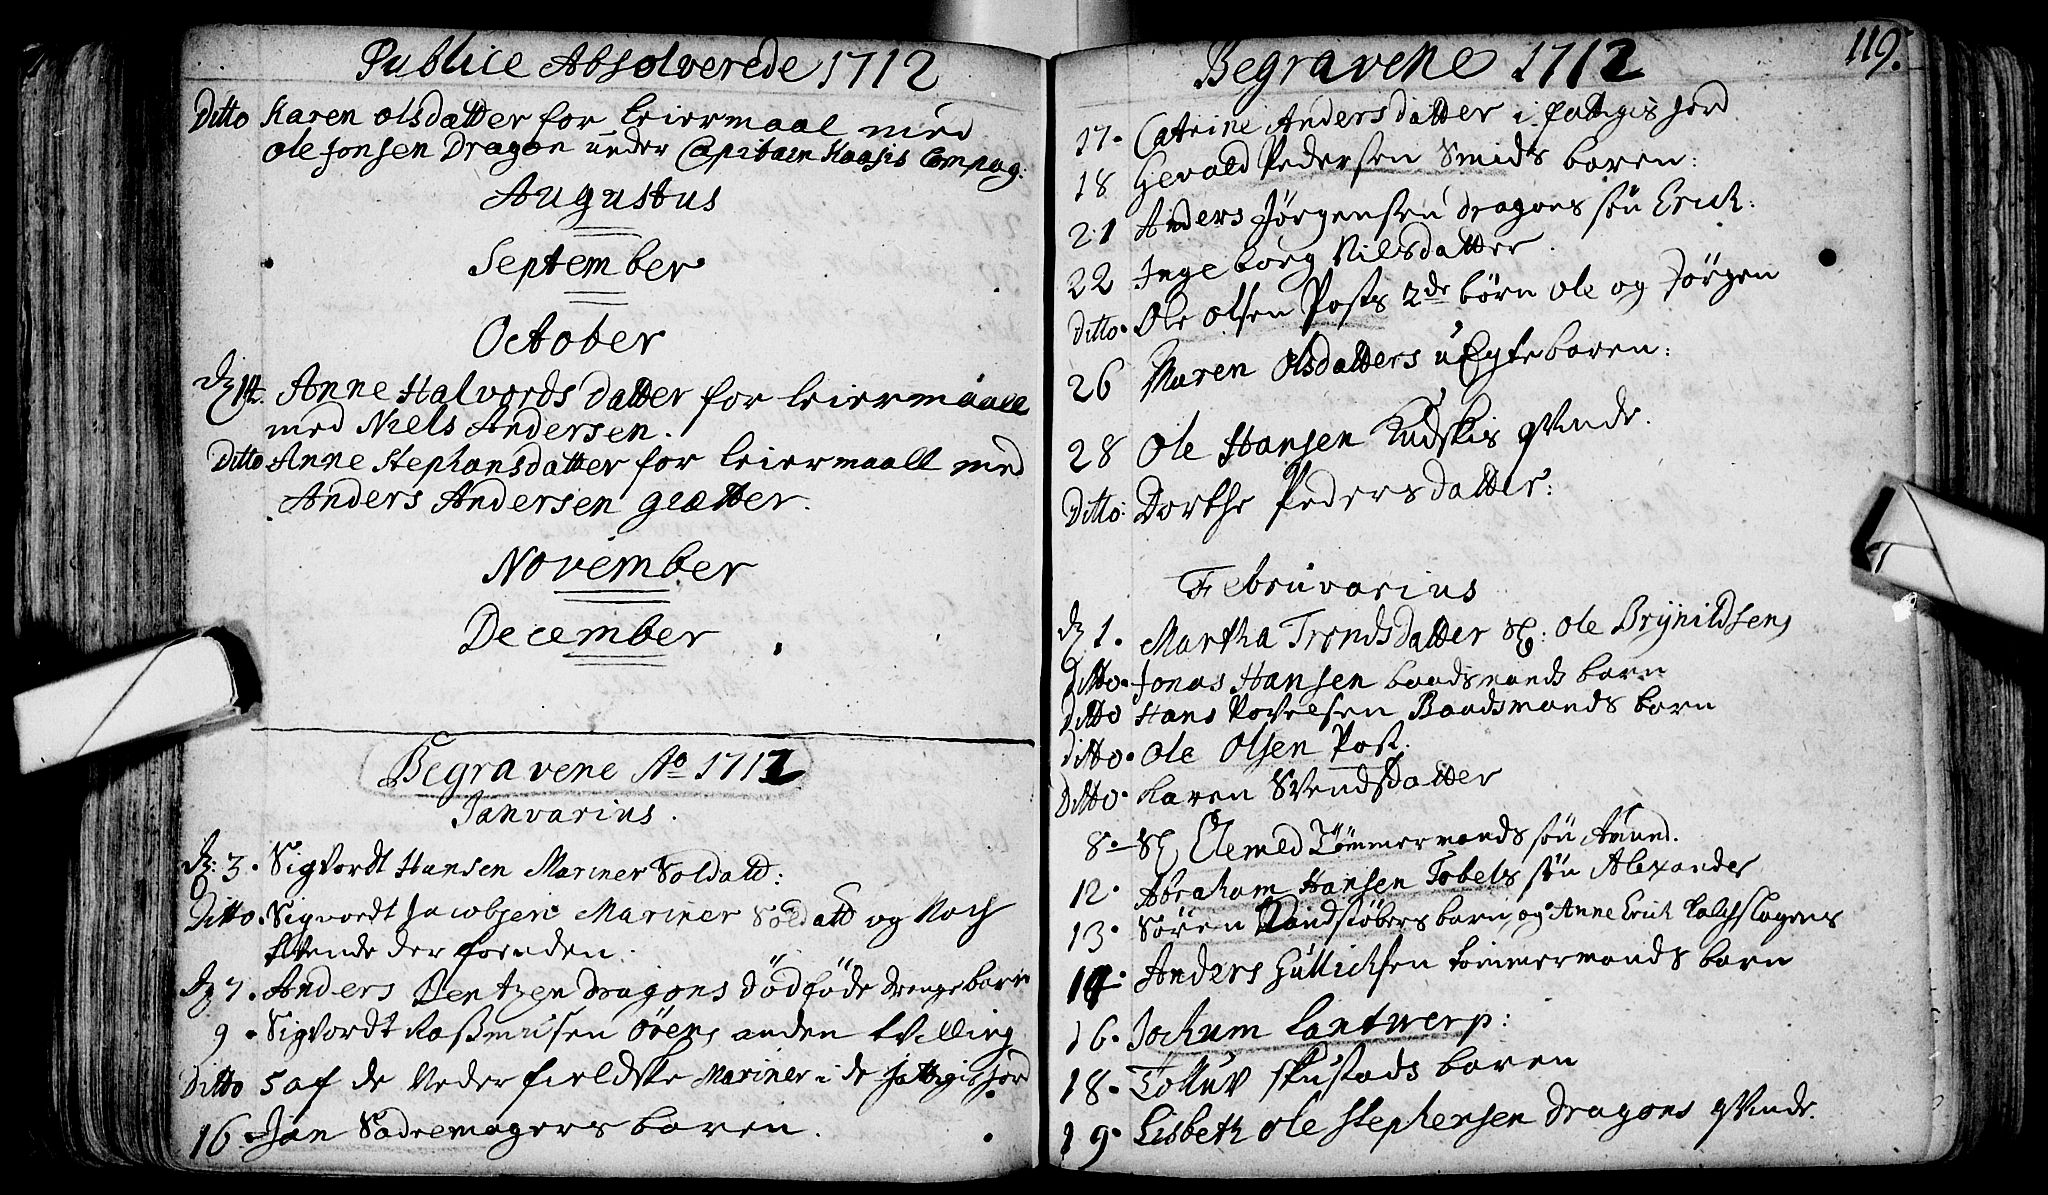 Publice Absolverede 1712
Ditto Karen olsdatter for leiermaal med
ole Jonsen Dragon under Capitain Kaasis Compag:
Augustus
September
October
Dz 14. Anne Halvords datter for leiermaall
med Niels Andersen.
Ditto Anne Stephansdatter for leiermaall med
Anders Andersen
November
December
Begravene Ao 1712
Ianvarius.
Dz: 3. Sigvordt Hansen Mariner Soldatt:
Ditto. Sigvordt Jacobsen Mariner Soldatt og
der foruden.
Dz 7. Anders Bentzen dragons dödföde drengebarn
9. Sigvordt Rasmusen anden tvilling
Ditto 5 af de Nederfieldske Mariner i de fattigis jord
16. Jan Sadelmagers baren.
Begravene 1712
119.
17. Catrine Andersdatter i fattigis jord
18 Pedersen Smids baren:
21 Anders Jörgensen dragons sön Erick:
22 Ingeborg Nilsdatter.
Ditto. Ole olsen Posts 2de börn ole og Jörgen
26 Maren olsdatters uEgte baren:
28 Ole Hansen Kudskis qvinde.
Ditto: Dorthe Pedersdatter:
Februvarius
Dz 1. Martha Trondsdatter Sl: ole Brynildsens
Ditto. Jonas Hansen baadsmands barn
Ditto Hans Povelsen Baadsmands barn
Ditto. Ole Olsen Post.
Ditto. Karen Svendsdatter
8. Sl Clemed Tömmermands sön Amund.
12. Abraham Hansen Tobels sön Alexander
13. Sören barn og Anne Erick
14. Anders Gullichsen tömmermands barn
16. Jochum Lantwerp:
18. Tolluv baren
19. Lisbeth ole Stephensen dragons qvinde.